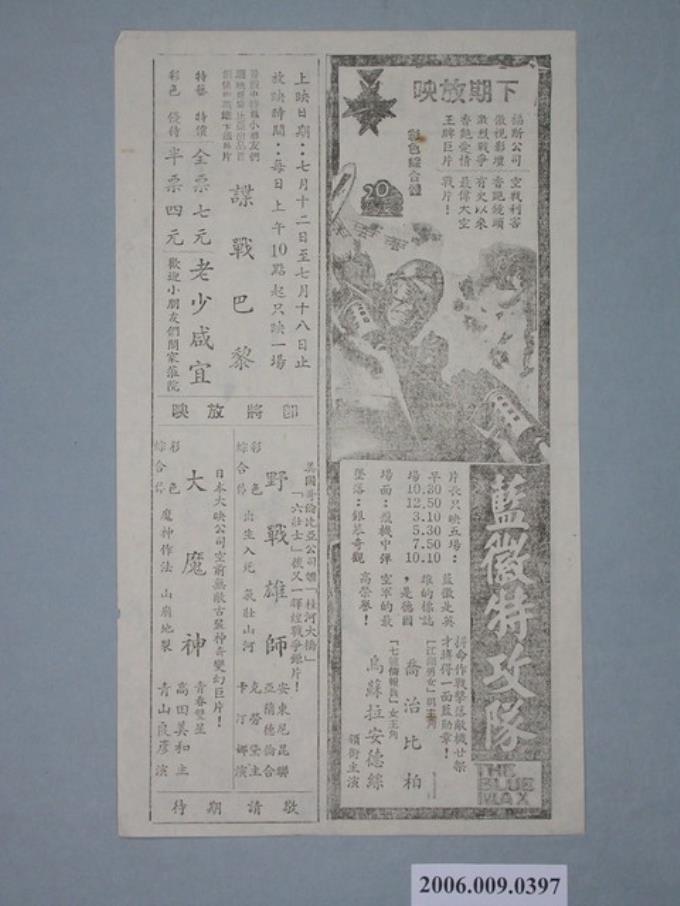 下期放映
福斯公司 空戰利害
香艷鏡頭
激烈戰爭 有史以來
香艷愛情 最偉大空
王牌巨片 戰片！
彩色綜合體
20
藍徽特攻隊
THE BLUE MAX
片長只映五場：
早10.12.3.5.7.
場30.50.10.30.50.10
場面：飛機中彈
墜落：銀幕奇觀
藍徽是英
雄的標誌
，是德國
空軍的最
高榮譽！
拚命作戰擊落敵機廿架
才獲得一面藍勛章！
「江湖男女」男主角
喬治比柏
女主角
烏蘇拉安德絲
領銜主演
上映日期：七月十二日至七月十八日止
放映時間：每日上午10點起只映一場
諜戰巴黎
特藝 特價 全票七元
彩色 優待 半票四元
老少咸宜
歡迎小朋友們闔家蒞院
即將放映
美國哥倫比亞公司繼「桂河大橋」
「六壯士」後又一輝煌戰爭鉅片！
彩色
綜合體
野戰雄師
出生入死 氣壯山河
安東尼昆
亞蘭德倫
克勞黛
卡汀娜
聯合主演
日本大映公司空前無敵古裝神奇變幻巨片！
彩色
綜合體
大魔神
魔神作法 山崩地裂
青春雙星
高田美和
青山良彥
主演
敬請期待
2006.009.0397